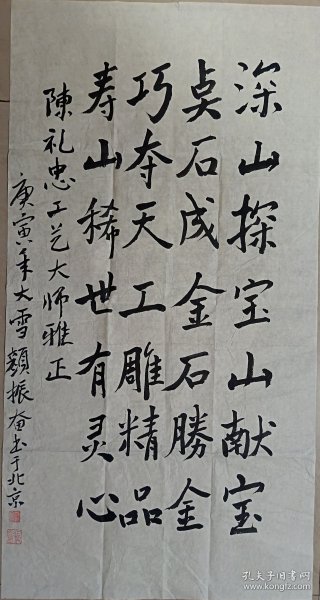 深山探宝山献宝
点石成金石勝金
巧夺天工雕精品
寿山稀世有灵心
陳礼忠工艺大师雅正
庚寅年大雪顏振奋书于北京
孔夫子旧书网
www.kongfz.com